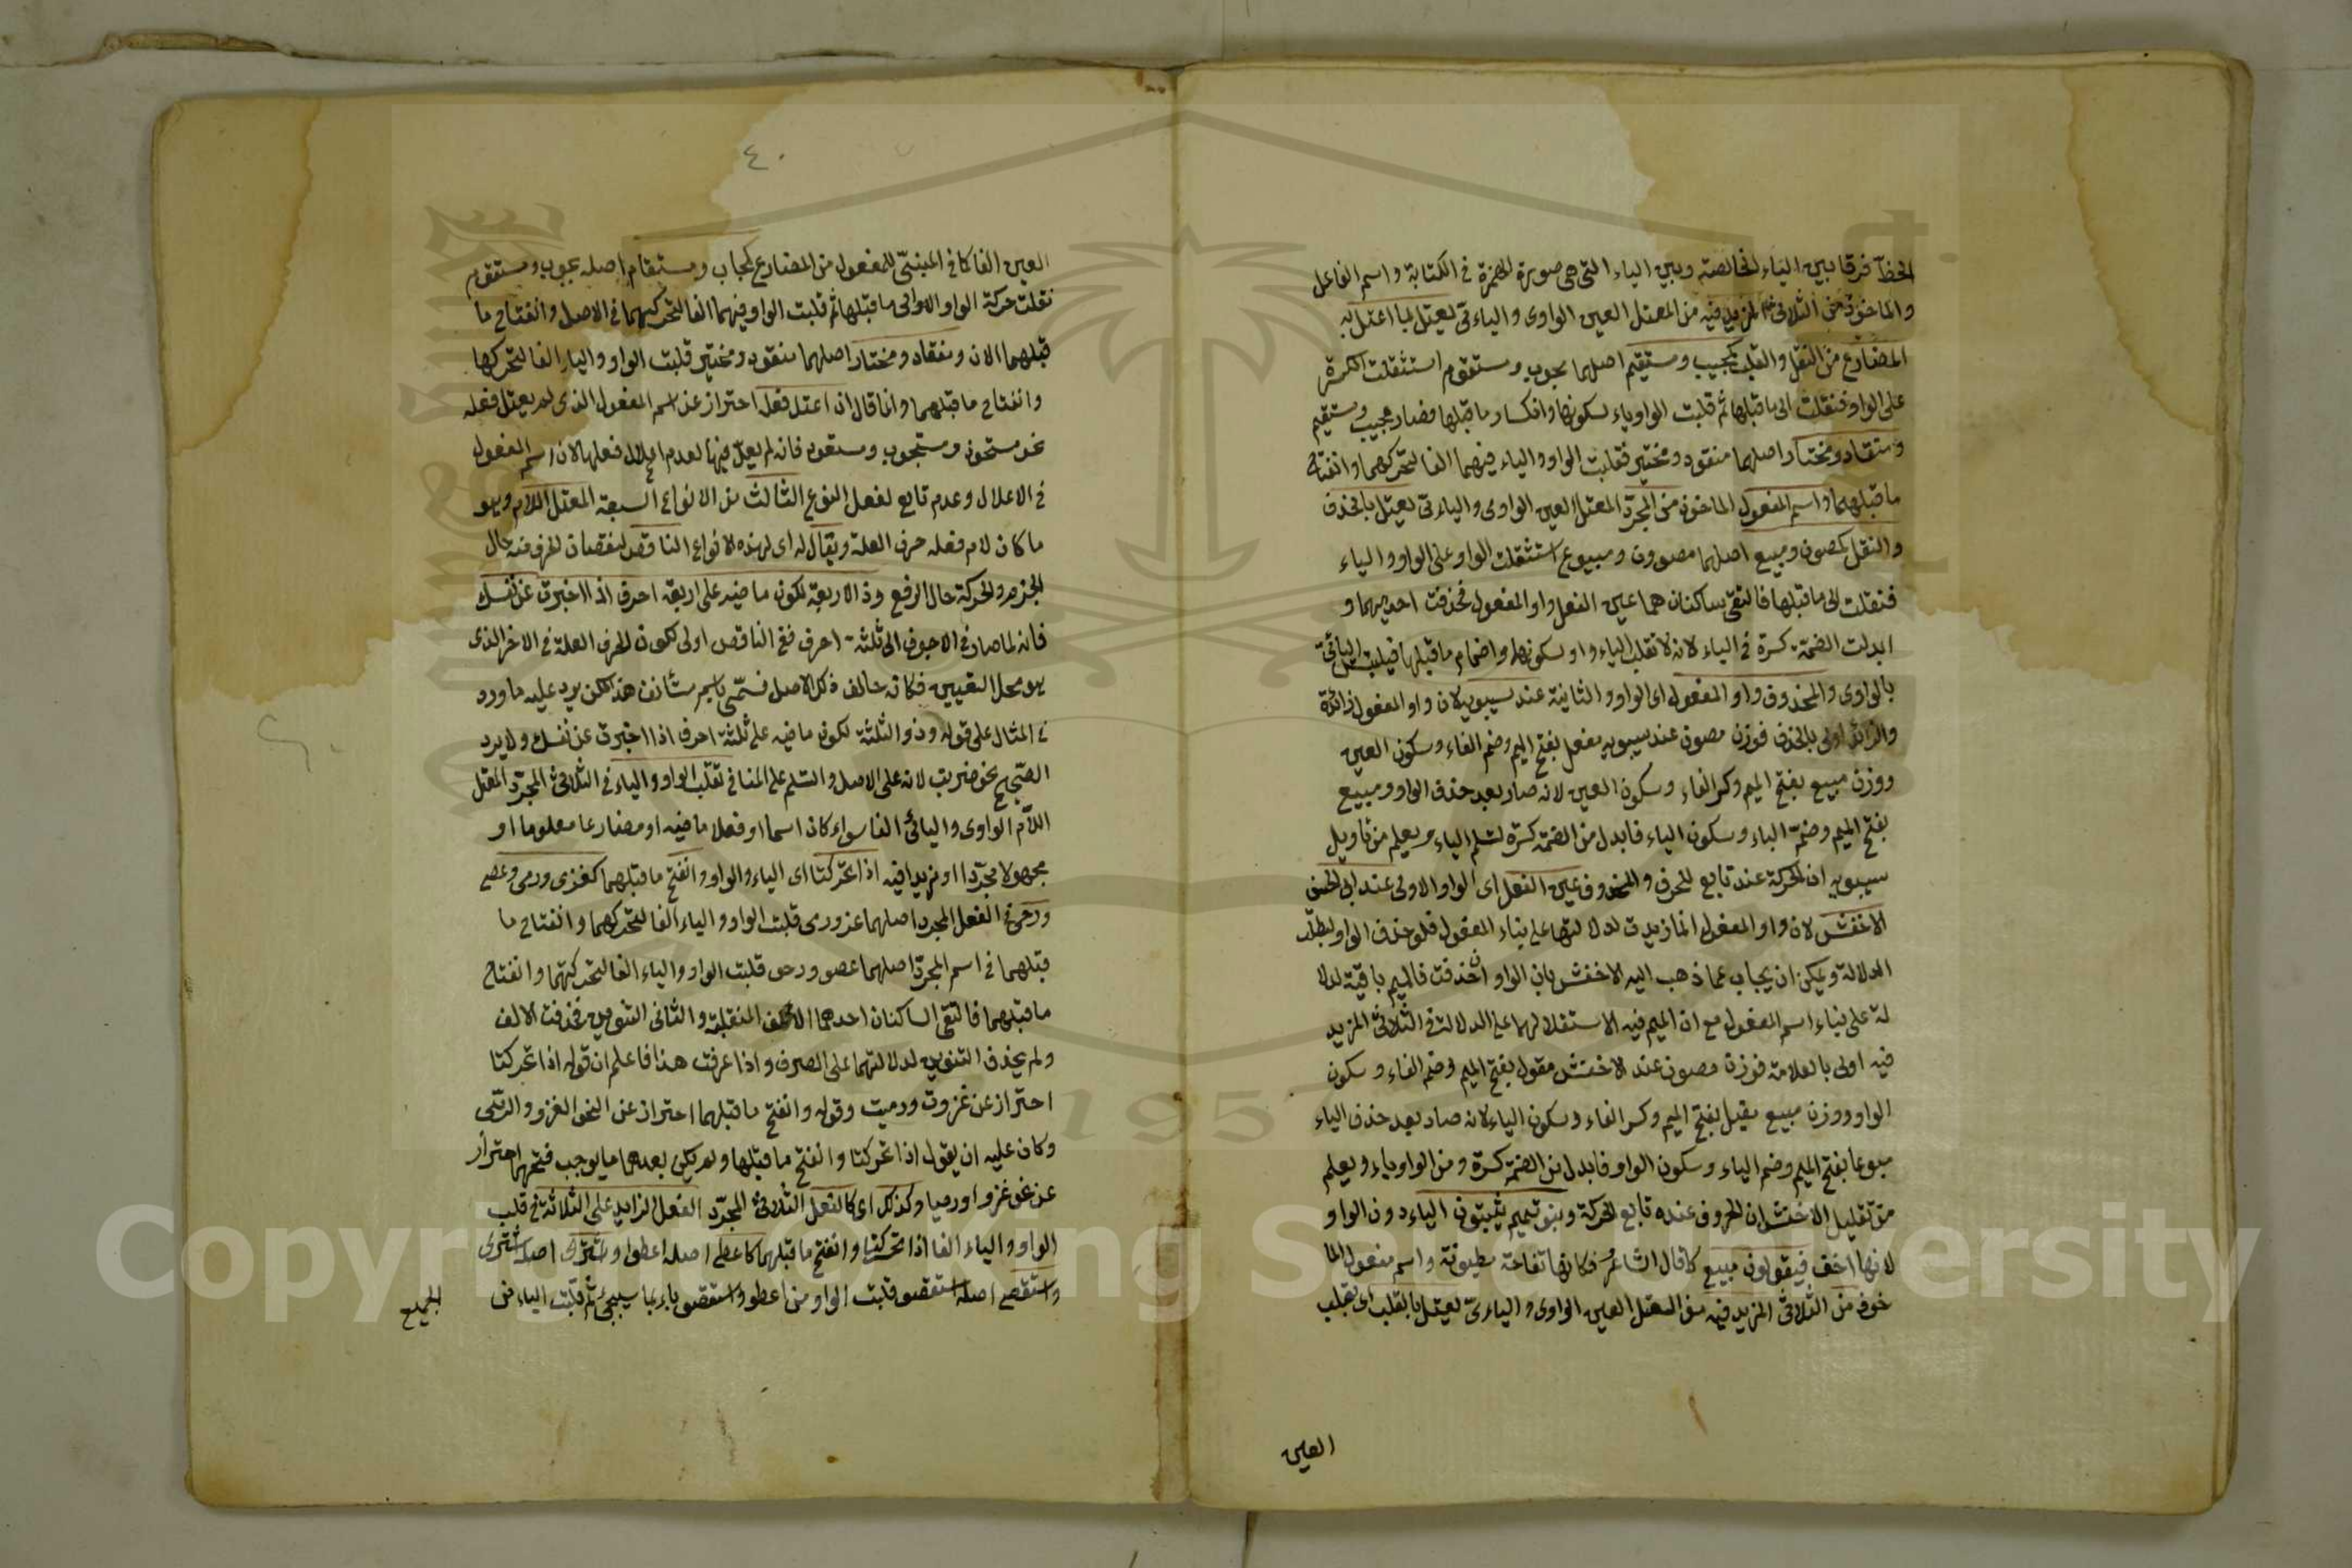 الخط فرقا بين الياء الخالصة وبين الياء التى هى صورة الهمزة فى الكتابة واسم الفاعل
والماخوذ من الثلاثى المزيد فيه من المعتل العين الواوى واليائى يعتل بما اعتل به
المضارع من النقل والقلب كمجيب ومستقيم اصلهما مجوب ومستقوم استثقلت الكسرة
على الواو فنقلت الى ما قبلها ثم قلبت الواو ياء لسكونها وانكسار ما قبلها فصار مجيب ومستقيم
ومنقاد ومختار اصلهما منقود ومختير فقلبت الواو والياء فيهما الفا لتحركهما وانفتاح
ما قبلهما واسم المفعول الماخوذ من المجرد المعتل العين الواوى واليائى يعتل بالحذف
والنقل كمصون ومبيع اصلهما مصوون ومبيوع استثقلت الواو على الواو والياء
فنقلت الى ما قبلها فالتقى ساكنان هما عين الفعل واو المفعول فحذفت احديهما و
ابدلت الضمة كسرة فى الياء لانه لا تقلب الياء واو لسكونها وانضمام ما قبلها فيلتبس اليائى
بالواوى والمحذوف واو المفعول اى الواو الثانية عند سيبويه لان واو المفعول زائدة
والزائد اولى بالحذف فوزن مصون عند سيبويه مفعل بفتح الميم وضم الفاء وسكون العين
ووزن مبيع بفتح الميم وكسر الفاء وسكون العين لانه صار بعد حذف الواو ومبيع
بفتح الميم وضمة الباء وسكون الياء فابدل من الضمة كسرة لتسلم الياء ويعلم من تاويل
سيبويه ان الحركة عند تابع للحرف والمحذوف عين الفعل اى الواو الاولى عند ابى الحسن
الاخفش لان واو المفعول انما زيدت لدلالتها على بناء المفعول فلو حذف الواو لبطلت
الدلالة ويمكن ان يجاب عما ذهب اليه الاخفش بان الواو ان حذفت فالميم باقية لدلا
لة على بناء اسم المفعول مع ان الميم فيه الاستقلالهما على الدلالة فى الثلاثى المزيد
فيه اولى بالعلامة فوزن مصون عند الاخفش مفول بفتح الميم وضم الفاء وسكون
الواو ووزن مبيع مفيل بفتح الميم وكسر الفاء وسكون الياء لانه صار بعد حذف الياء
مبوعا بفتح الميم وضم الباء وسكون الواو فابدل من الضمة كسرة ومن الواو ياء ويعلم
من تعليل الاخفش ان الحروف عنده تابع للحركة وبنو تميم يثبتون الياء دون الواو
لانها اخف فيقولون مبيع كما قال الشاعر فكانها تفاحة مطيوبة واسم مفعول الما
خوذ من الثلاثى المزيد فيه من المعتل العين الواوى واليائى يعتل بالقلب اى بقلب
العين
٤٠
العين الفا كما فى المبنى للمفعول من المضارع كمجاب ومستقام اصله مجوب ومستقوم
نقلت حركة الواو الى ما قبلها ثم قلبت الواو فيهما الفا لتحركهما فى الاصل وانفتاح ما
قبلهما الان ومنقاد ومختار اصلهما منقود ومختير قلبت الواو والياء الفا لتحركها
وانفتاح ما قبلهما وانما قال ان اعتل فعله احتراز عن اسم المفعول الذى لم يعتل فعله
نحو مستحوذ ومستجوب ومعتون فانه لم يعل فيها لعدم اعلال فعلها لان اسم المفعول
فى الاعلال وعدم تابع لفعل النوع الثالث من الانواع السبعة المعتل اللام وهو
ما كان لام فعله حرف العلة ويقال له اى لهذه الانواع الناقص لنقصان الحرف منه حال
الجزم والحركة حال الرفع وذا الاربعة لكون ماضيه على اربعة احرف اذا اخبرت عن نفسك
فانه لما صار فى الاجوف الى ثلثة احرف ففى الناقص اولى لكون الحرف العلة فى الاخر الذى
هو محل التغيير فكانه خالف ذلك الاصل فسمى باسم هذا لكن يرد عليه ما ورد
فى المثال على قوله وذو الثلثة لكون ماضيه على ثلثة احرف اذا اخبرت عن نفسك ولا يرد
الصحيح نحو ضربت لانه على الاصل فى تقلب الواو والياء فى الثلاثى المجرد المعتل
اللام الواوى واليائى الفا سواء كان اسما او فعلا ماضيه او مضارعا معلوما او
مجهولا مجردا او مزيدا فيه اذا تحركتا اى الياء والواو وانفتح ما قبلهما كغزى ورمى وعصى
ورحى فى الفعل المجرد اصلهما غزو ورمى قلبت الواو والياء الفا لتحركهما وانفتاح ما
قبلهما فى اسم المجرد اصلهما عصو ورحى قلبت الواو والياء الفا لتحركتهما وانفتاح
ما قبلهما فالتقى الساكنان احدهما الالف المنقلبة والثانى التنوين فحذفت الالف
ولم يحذف التنوين لدلالتهما على الصرف واذا عرفت هذا فاعلم ان قوله اذا تحركتا
احتراز عن غزوت ورميت وقوله وانفتح ما قبلهما احتراز عن النحو الغزو والرمى
وكان عليه ان يقول اذا تحركتا وانفتح ما قبلها ولم يكن بعدهما ما يوجب فتحهما احتراز
عن نحو غزوا ورميا وكذلك اى كالفعل الثلاثى المجرد الفعل الزايد على الثلاثة فى قلب
الواو والياء الفا اذا تحركتا وانفتح ما قبلهما كاعطى اصله اعطو واشترى اصله اشترى
واستقصى اصله استقصو قلبت الواو من اعطو واستقصو ياء بما سيجئ ثم قلبت الياء من
الجميع
Copyright © King Saud University
1957